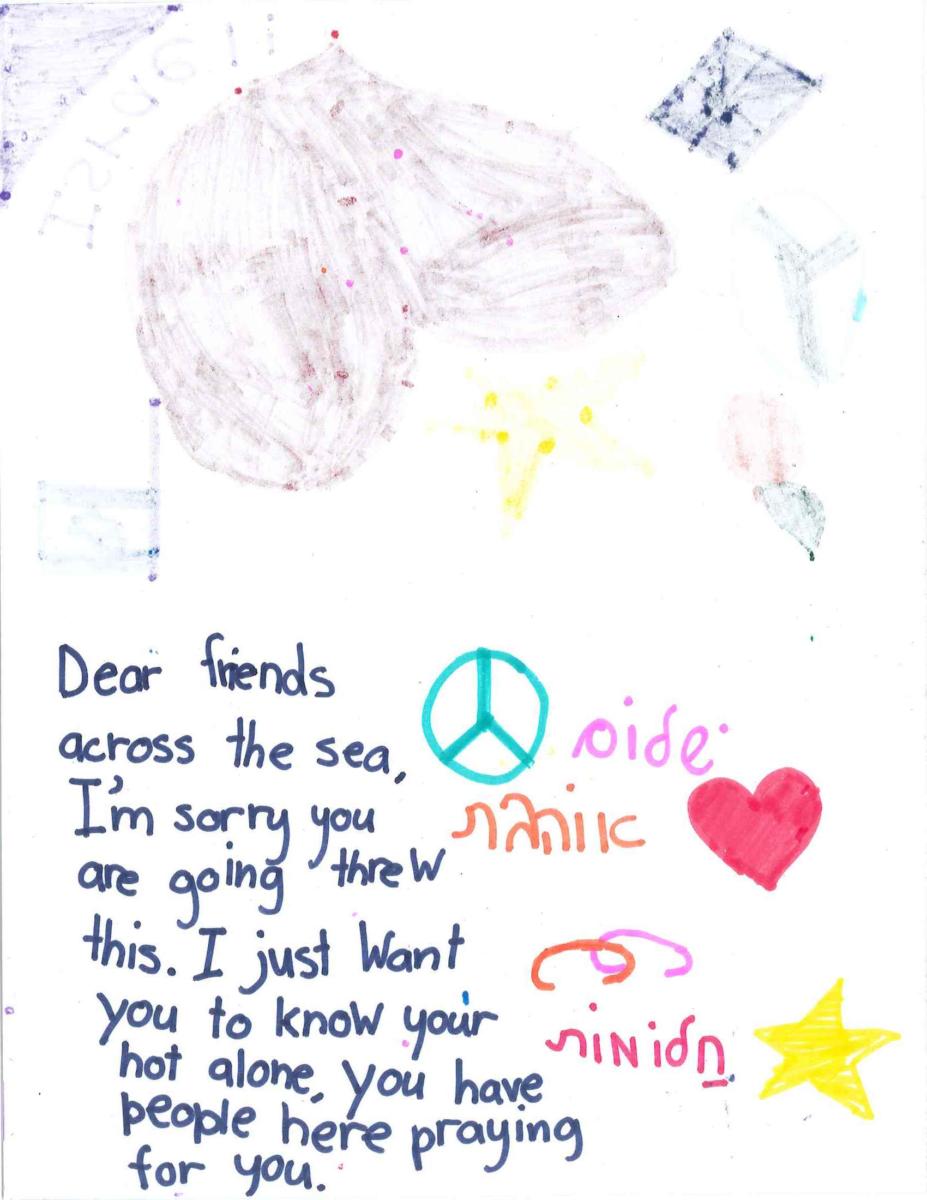 Israel!!
Dear friends
across the sea,
I'm sorry you
are going threw
this. I just want
you to know your
not alone, you have
people here praying
for you.
שלום
חלומות